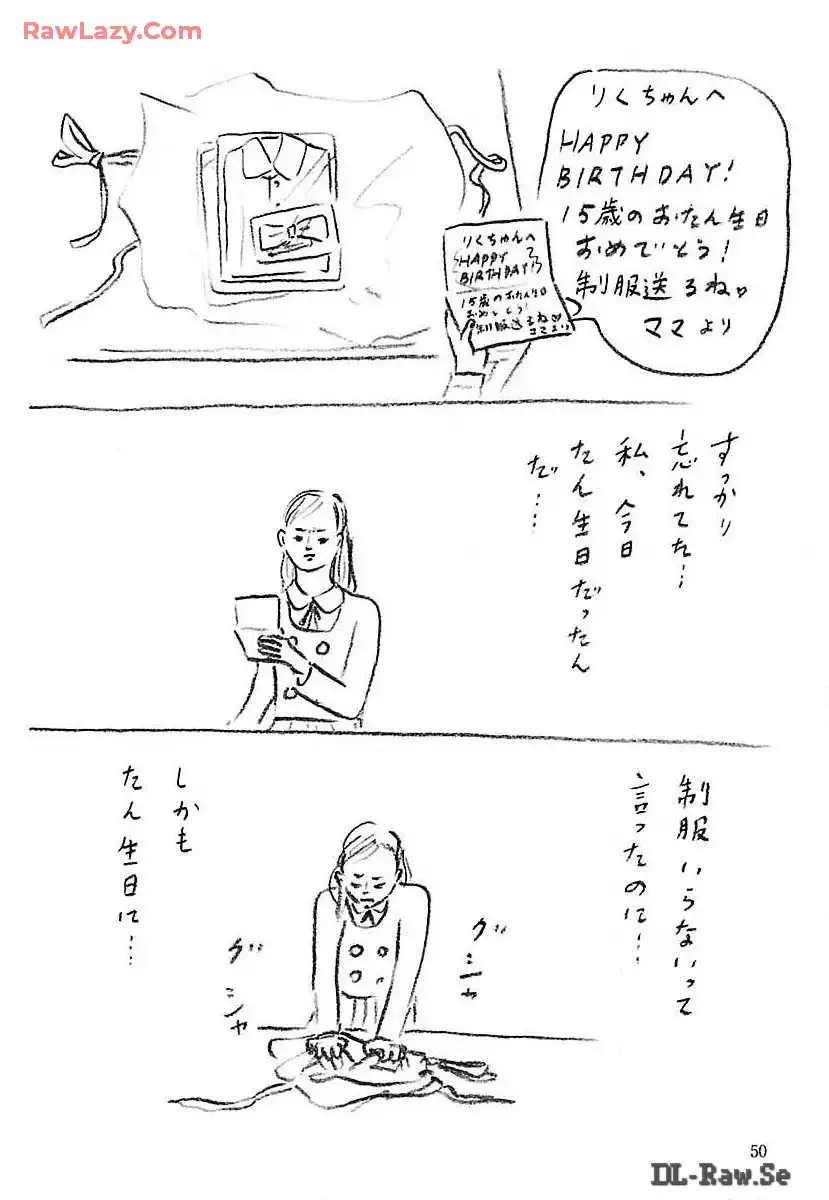 RawLazy.Com
りくちゃんへ
HAPPY
BIRTHDAY!
15歳のおたん生日
おめでとう!
制服送るね♡
ママより
りくちゃんへ
HAPPY
BIRTHDAY!
15歳のおたん生日
おめでとう!
制服送るね♡
ママより
すっかり
忘れてた…
私、今日
たん生日だったん
だ……
制服いらないって
言ったのに…
グシャ
グシャ
しかも
たん生日に…
50
DL-Raw.Se